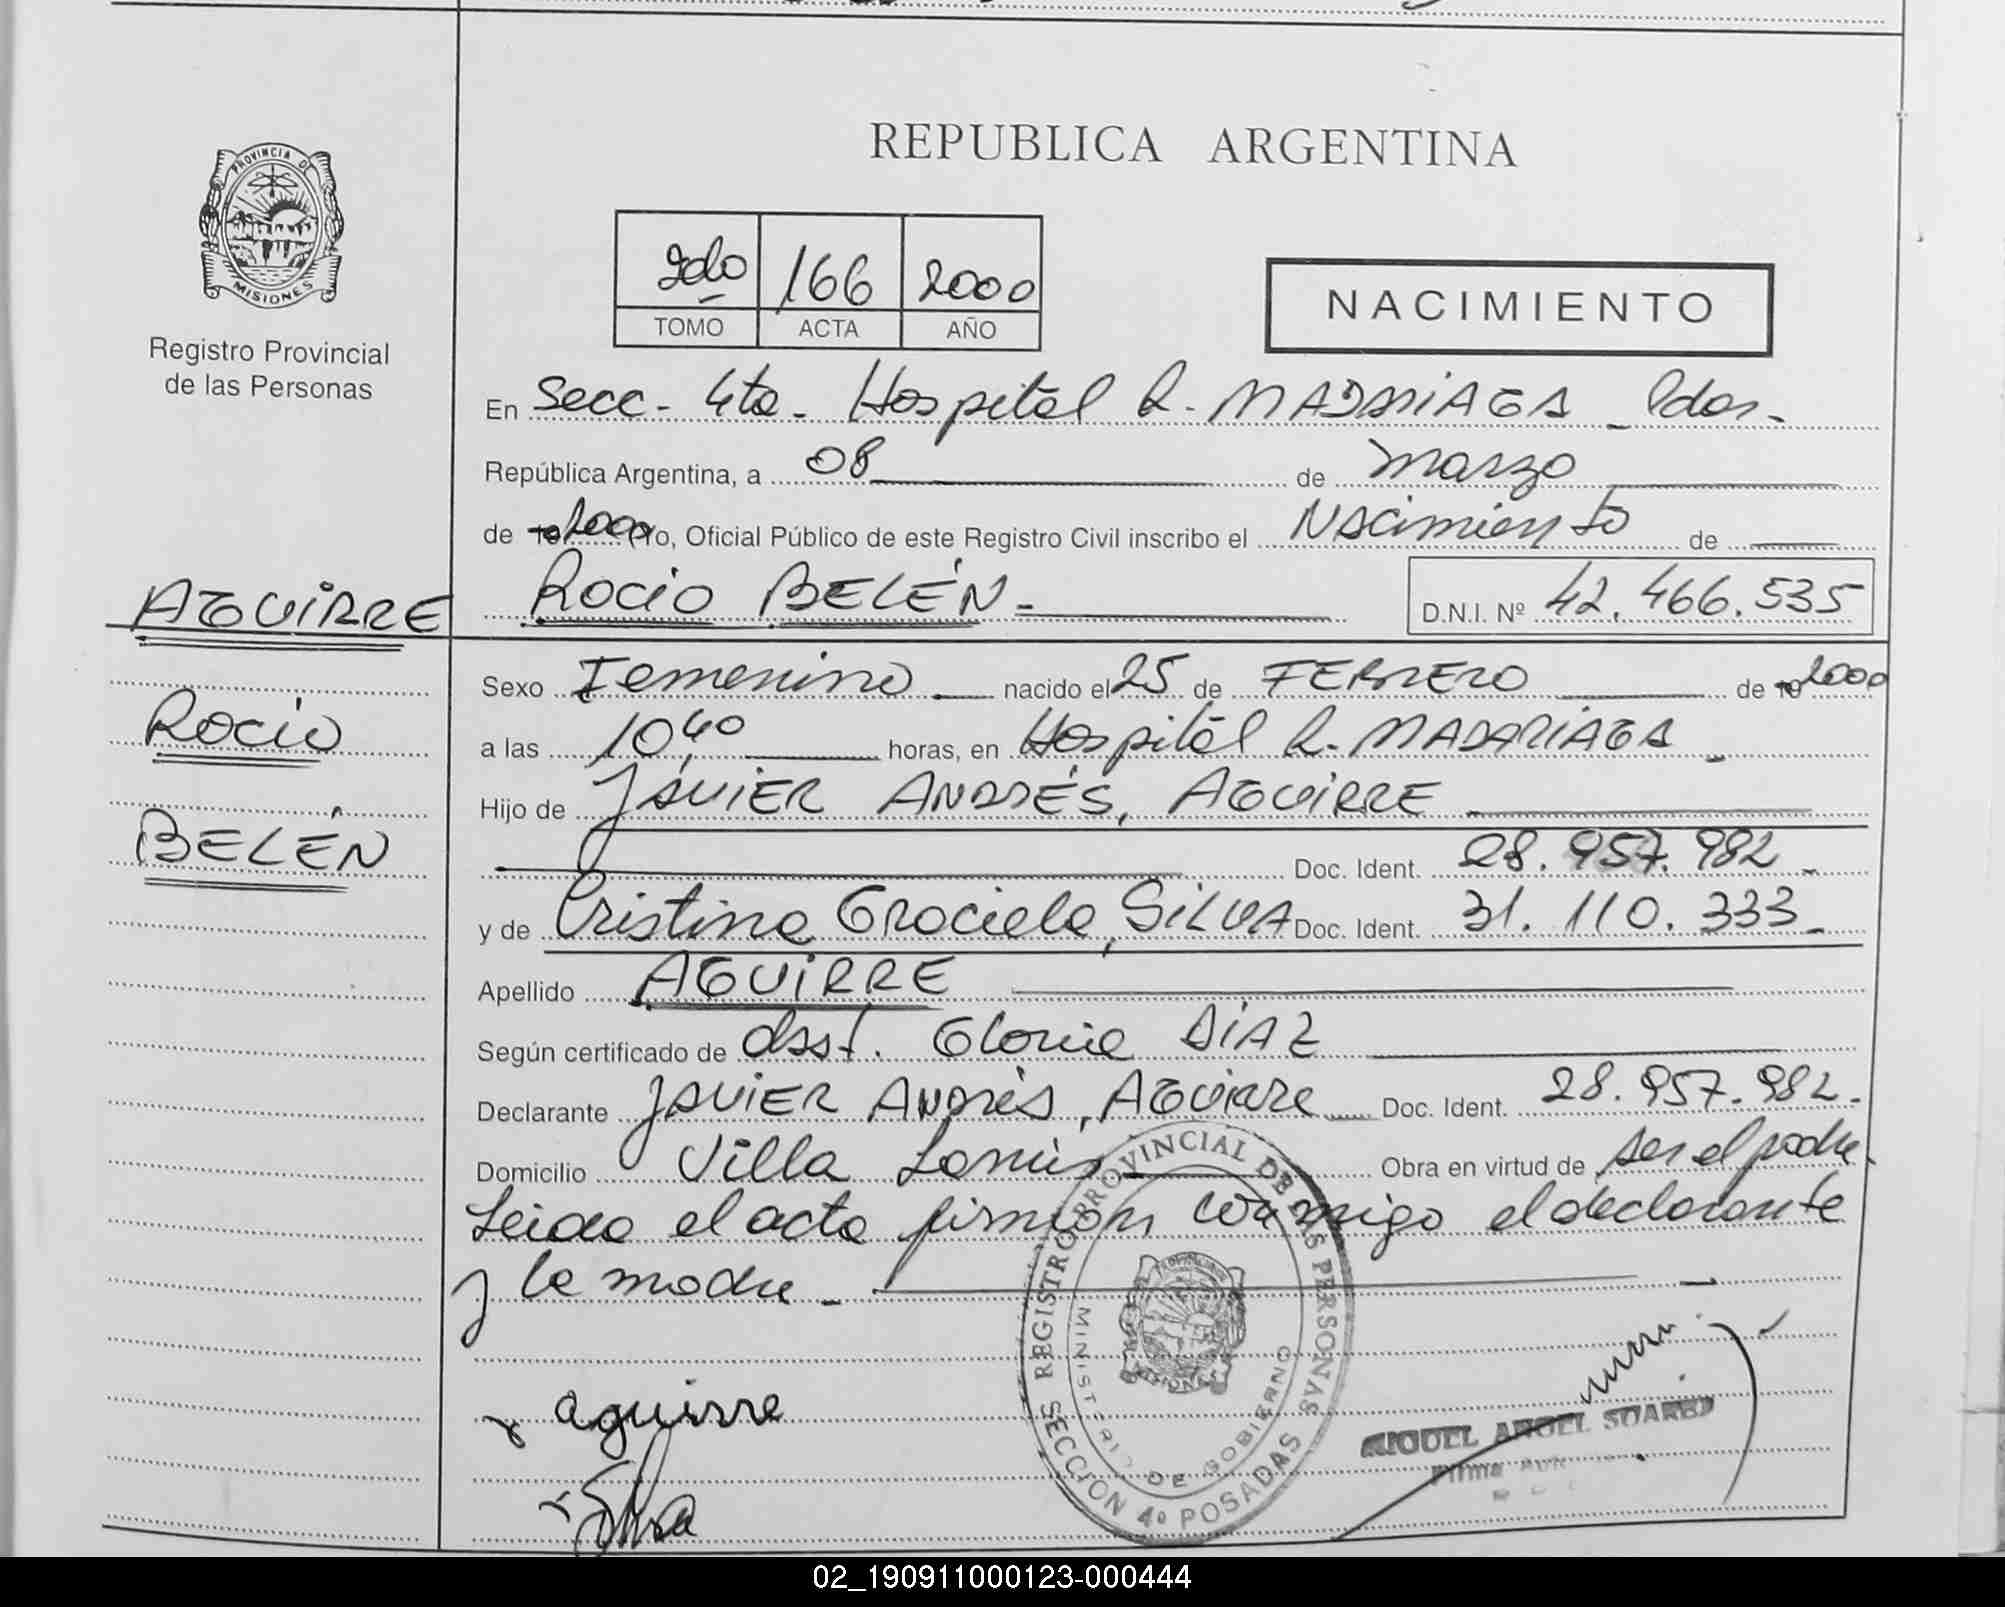 REPUBLICA ARGENTINA
PROVINCIA DE
MISIONES
Registro Provincial
de las Personas
2do 166 2000
TOMO ACTA AÑO
NACIMIENTO
En Secc. 4ta. Hospital R. MADARIAGA Pdas.
República Argentina, a 08 de marzo
de 2000 Yo, Oficial Público de este Registro Civil inscribo el Nacimiento de
AGUIRRE ROCIO BELÉN. D.N.I. Nº 42.466.535
Sexo Femenino nacido el 25 de FEBRERO de 2000
ROCIO
a las 10,40 horas, en Hospital R. MADARIAGA
Hijo de JAVIER ANDRÉS, AGUIRRE
BELÉN
Doc. Ident. 28.957.982
y de Cristina Graciela, SILVA Doc. Ident. 31.110.333
Apellido AGUIRRE
Según certificado de Obst. Gloria DÍAZ
Declarante JAVIER ANDRÉS, AGUIRRE Doc. Ident. 28.957.982
Domicilio Villa Lanús Obra en virtud de ser el padre.
Leida el acta firman conmigo el declarante
y la madre.
REGISTRO PROVINCIAL DE LAS PERSONAS
MINISTERIO DE GOBIERNO
SECCION 4º POSADAS
aguirre
Silva
MIGUEL ANGEL SUAREZ
02_190911000123-000444